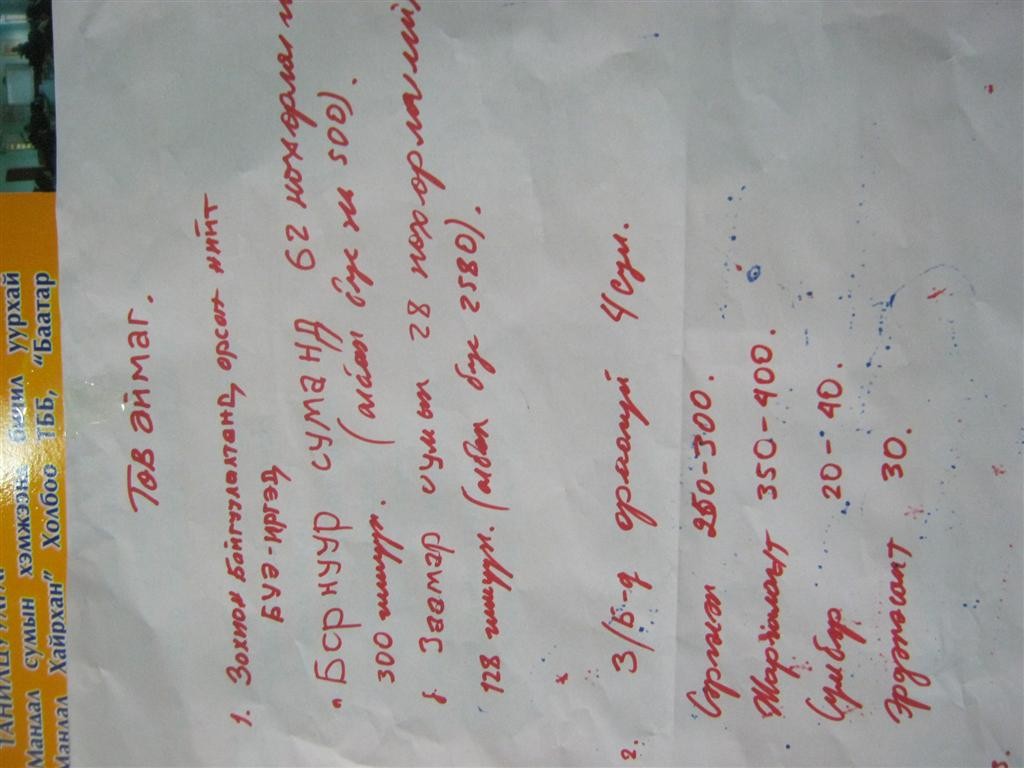 Мандал сумын хэмжээнд бичил уурхай
Мандал Хайрхан" Холбоо ТББ, "Баатар
Төв аймаг.
1. Зохион байгуулалтанд орсон нийт
бүгэ-иргэд
" Борнуур суманд 62 нөхөрлөл
300 гишүүн. (албан бус нь 500)
Заамар сумын 28 нөхөрлөлийн
128 гишүүн. (албан бус 2580).
2. З/Б-д ороогүй 4 сум.
Сэргэлэн 250-300.
Жаргалант 350-400.
Сүмбэр 20-40.
Эрдэнэсант 30.
3.